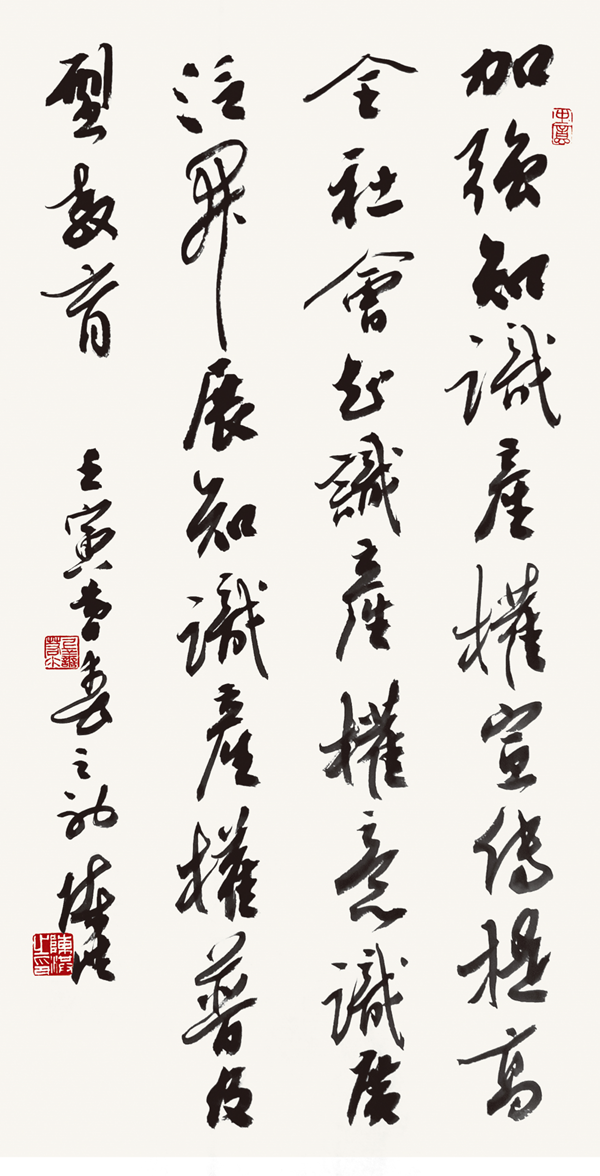 加強知識產權宣傳提高
全社會知識產權意識廣
泛開展知識產權普及
型教育
壬寅春之初 陳洪
陳洪之印